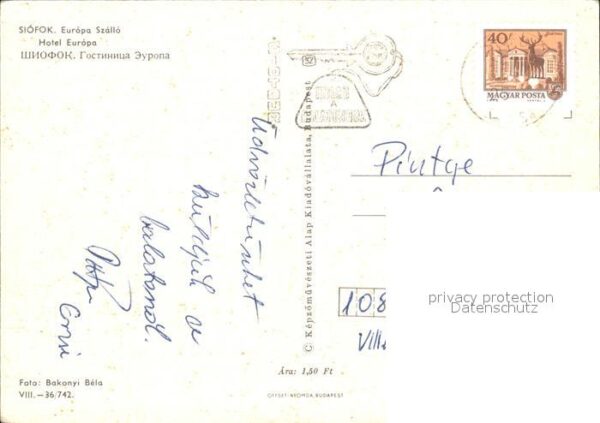 SIÓFOK. Európa Szálló
Hotel Európa
ШИОФОК. Гостиница Эуропа
40
MAGYAR POSTA
Üdvözletünket
küldjük a
balatonról.
Pintye
108
© Képzőművészeti Alap Kiadóvállalata, Budapest
Ára: 1,50 Ft
privacy protection
Datenschutz
Foto: Bakonyi Béla
VIII.—36/742.
OFFSET-NYOMDA BUDAPEST